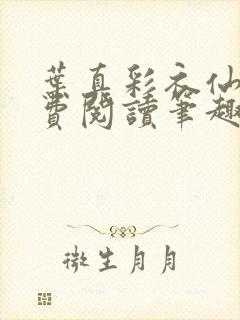 葉真彩衣仙
費閱讀筆趣
微生月月